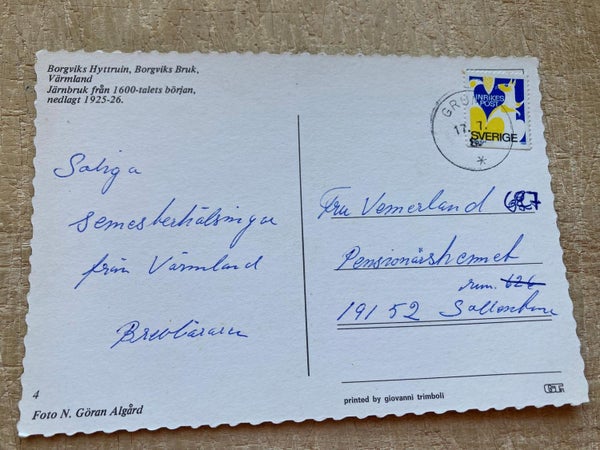 Borgviks Hyttruin, Borgviks Bruk,
Värmland
Järnbruk från 1600-talets början,
nedlagt 1925-26.
INRIKES
POST
SVERIGE
17. 7.
Soliga
semesterhälsningar
från Värmland
Brevbäraren
Fru Vemerland 627
Pensionärshemmet
rum. 626
191 52 Sollentuna
4
Foto N. Göran Algård
printed by giovanni trimboli